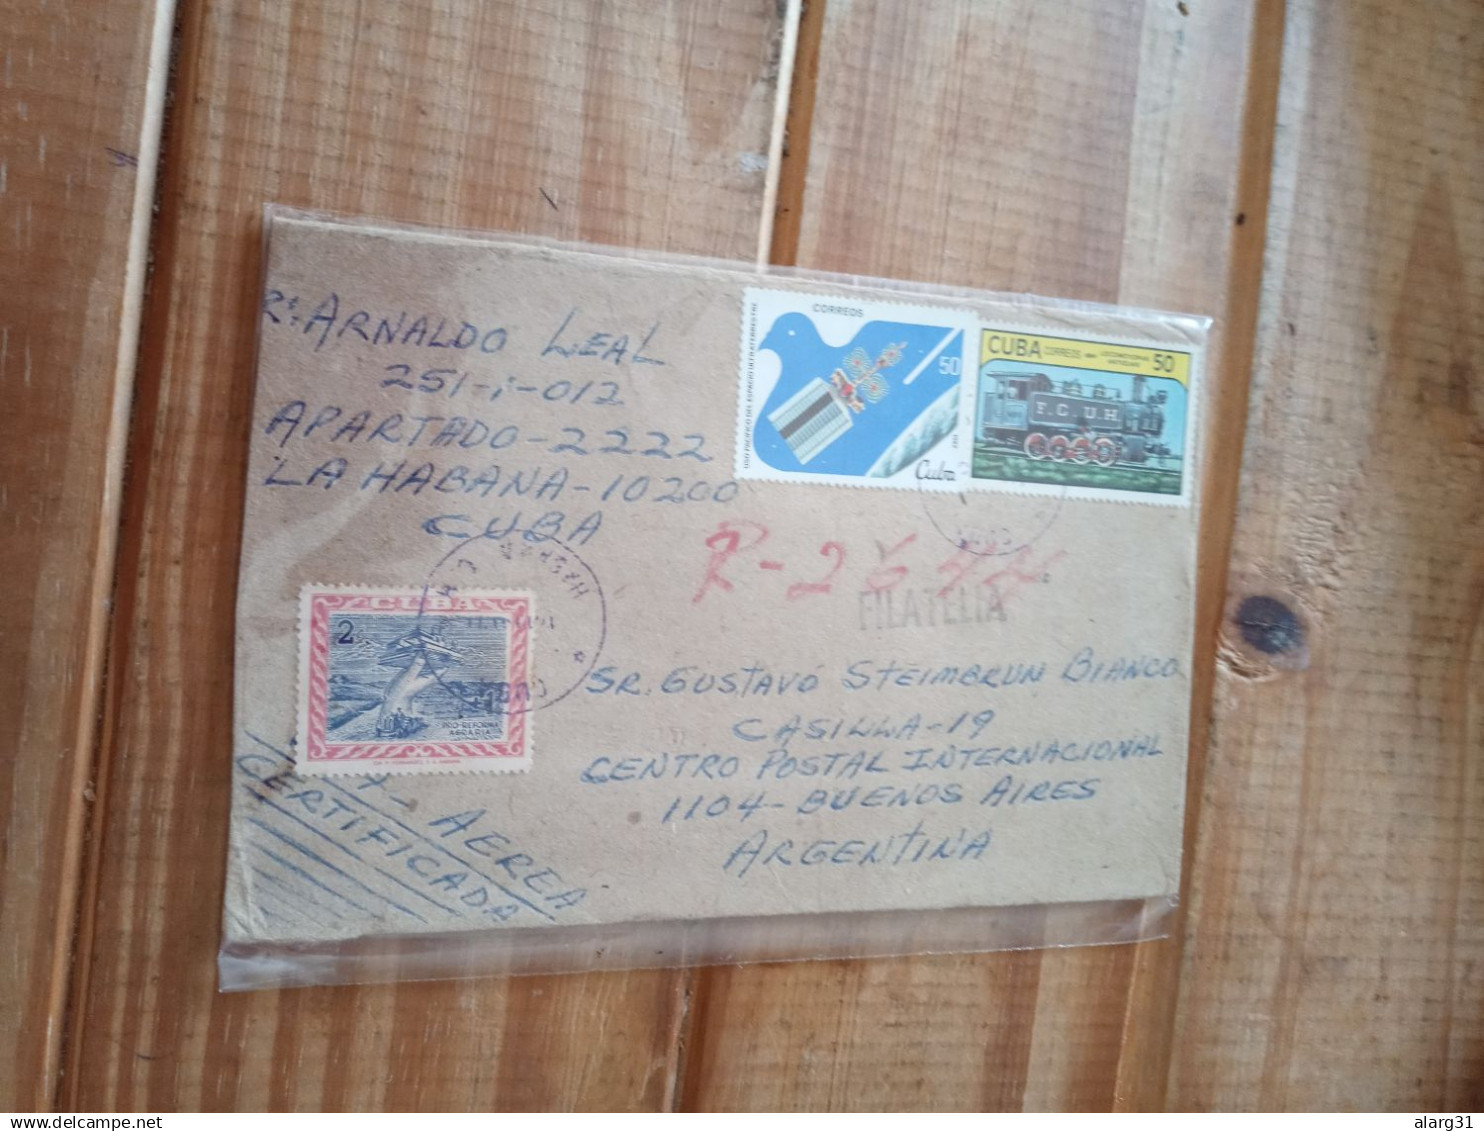 R: ARNALDO LEAL
251-i-012
APARTADO-2222
LA HABANA-10200
CUBA
CORREOS
USO PACIFICO DEL ESPACIO ULTRATERRESTRE
50
Cuba
CUBA CORREOS
LOCOMOTORAS
50
F.C.U.H.
R-26
FILATELIA
CUBA
2
PRO-REFORMA
AGRARIA
HABANA
CUBA
SR. GUSTAVO STEIMBRUN BIANCO
CASILLA-19
CENTRO POSTAL INTERNACIONAL
1104-BUENOS AIRES
ARGENTINA
AEREA
CERTIFICADA
alarg31